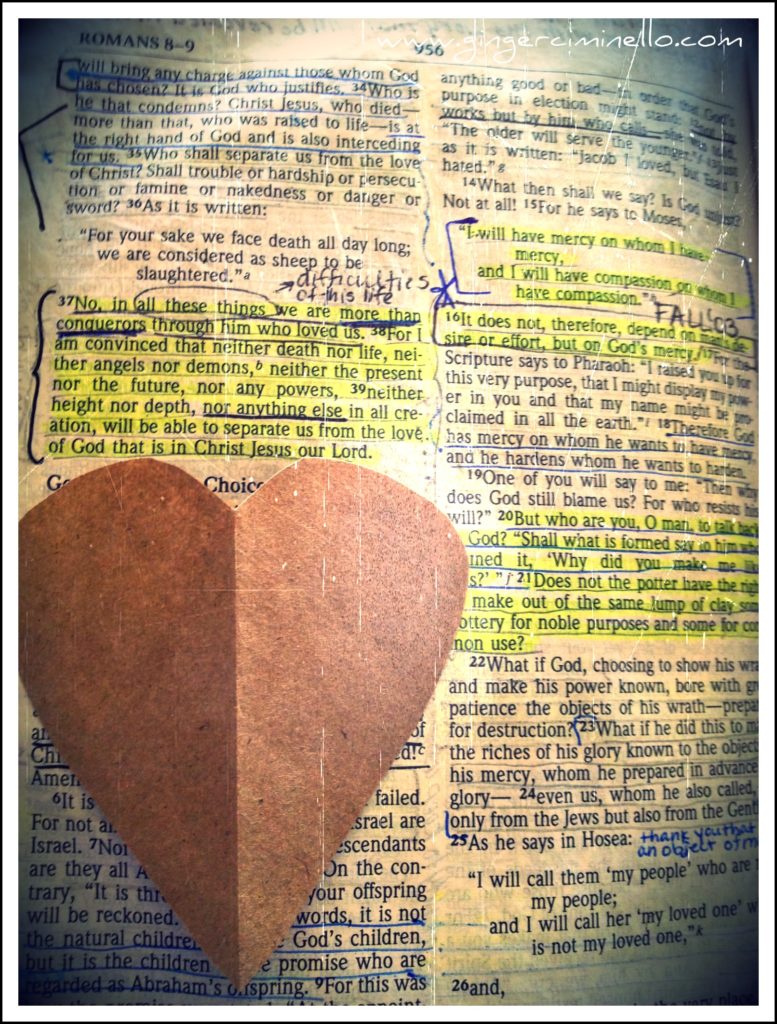 www.gingerciminello.com
ROMANS 8–9
956
will bring any charge against those whom God
has chosen? It is God who justifies. 34Who is
he that condemns? Christ Jesus, who died—
more than that, who was raised to life—is at
the right hand of God and is also interceding
for us. 35Who shall separate us from the love
of Christ? Shall trouble or hardship or persecu-
tion or famine or nakedness or danger or
sword? 36As it is written:
“For your sake we face death all day long;
we are considered as sheep to be
slaughtered.”a
difficulties
of this life
37No, in all these things we are more than
conquerors through him who loved us. 38For I
am convinced that neither death nor life, nei-
ther angels nor demons,b neither the present
nor the future, nor any powers, 39neither
height nor depth, nor anything else in all cre-
ation, will be able to separate us from the love
of God that is in Christ Jesus our Lord.
Choice
of
Ch
ed!c
Amen
6It is failed.
For not a Israel are
Israel. 7No escendants
are they all A On the con-
trary, “It is thr your offspring
will be reckoned. words, it is not
the natural children God's children,
but it is the children promise who are
regarded as Abraham's offspring. 9For this was
anything good or bad—in order that God's
purpose in election might stand:
works but by him who calls—she was told,
“The older will serve the younger.”
as it is written: “Jacob I loved, but Esau I
hated.”g
14What then shall we say? Is God unjust?
Not at all! 15For he says to Moses,
“I will have mercy on whom I have
mercy,
and I will have compassion on whom I
have compassion.”
FALL '03
16It does not, therefore, depend on man's de-
sire or effort, but on God's mercy. 17For the
Scripture says to Pharaoh: “I raised you up for
this very purpose, that I might display my pow-
er in you and that my name might be pro-
claimed in all the earth.”i 18Therefore God
has mercy on whom he wants to have mercy,
and he hardens whom he wants to harden.
19One of you will say to me: “Then why
does God still blame us? For who resists his
will?” 20But who are you, O man, to talk back
God? “Shall what is formed say to him who
med it, ‘Why did you make me like
s?’ ”j 21Does not the potter have the right
make out of the same lump of clay som
ottery for noble purposes and some for com
mon use?
22What if God, choosing to show his wra
and make his power known, bore with gr
patience the objects of his wrath—prepa
for destruction? 23What if he did this to m
the riches of his glory known to the object
his mercy, whom he prepared in advance
glory— 24even us, whom he also called,
only from the Jews but also from the Gent
25As he says in Hosea:
thank you that
an object of m
“I will call them ‘my people’ who are
my people;
and I will call her ‘my loved one’ w
is not my loved one,”k
26and,